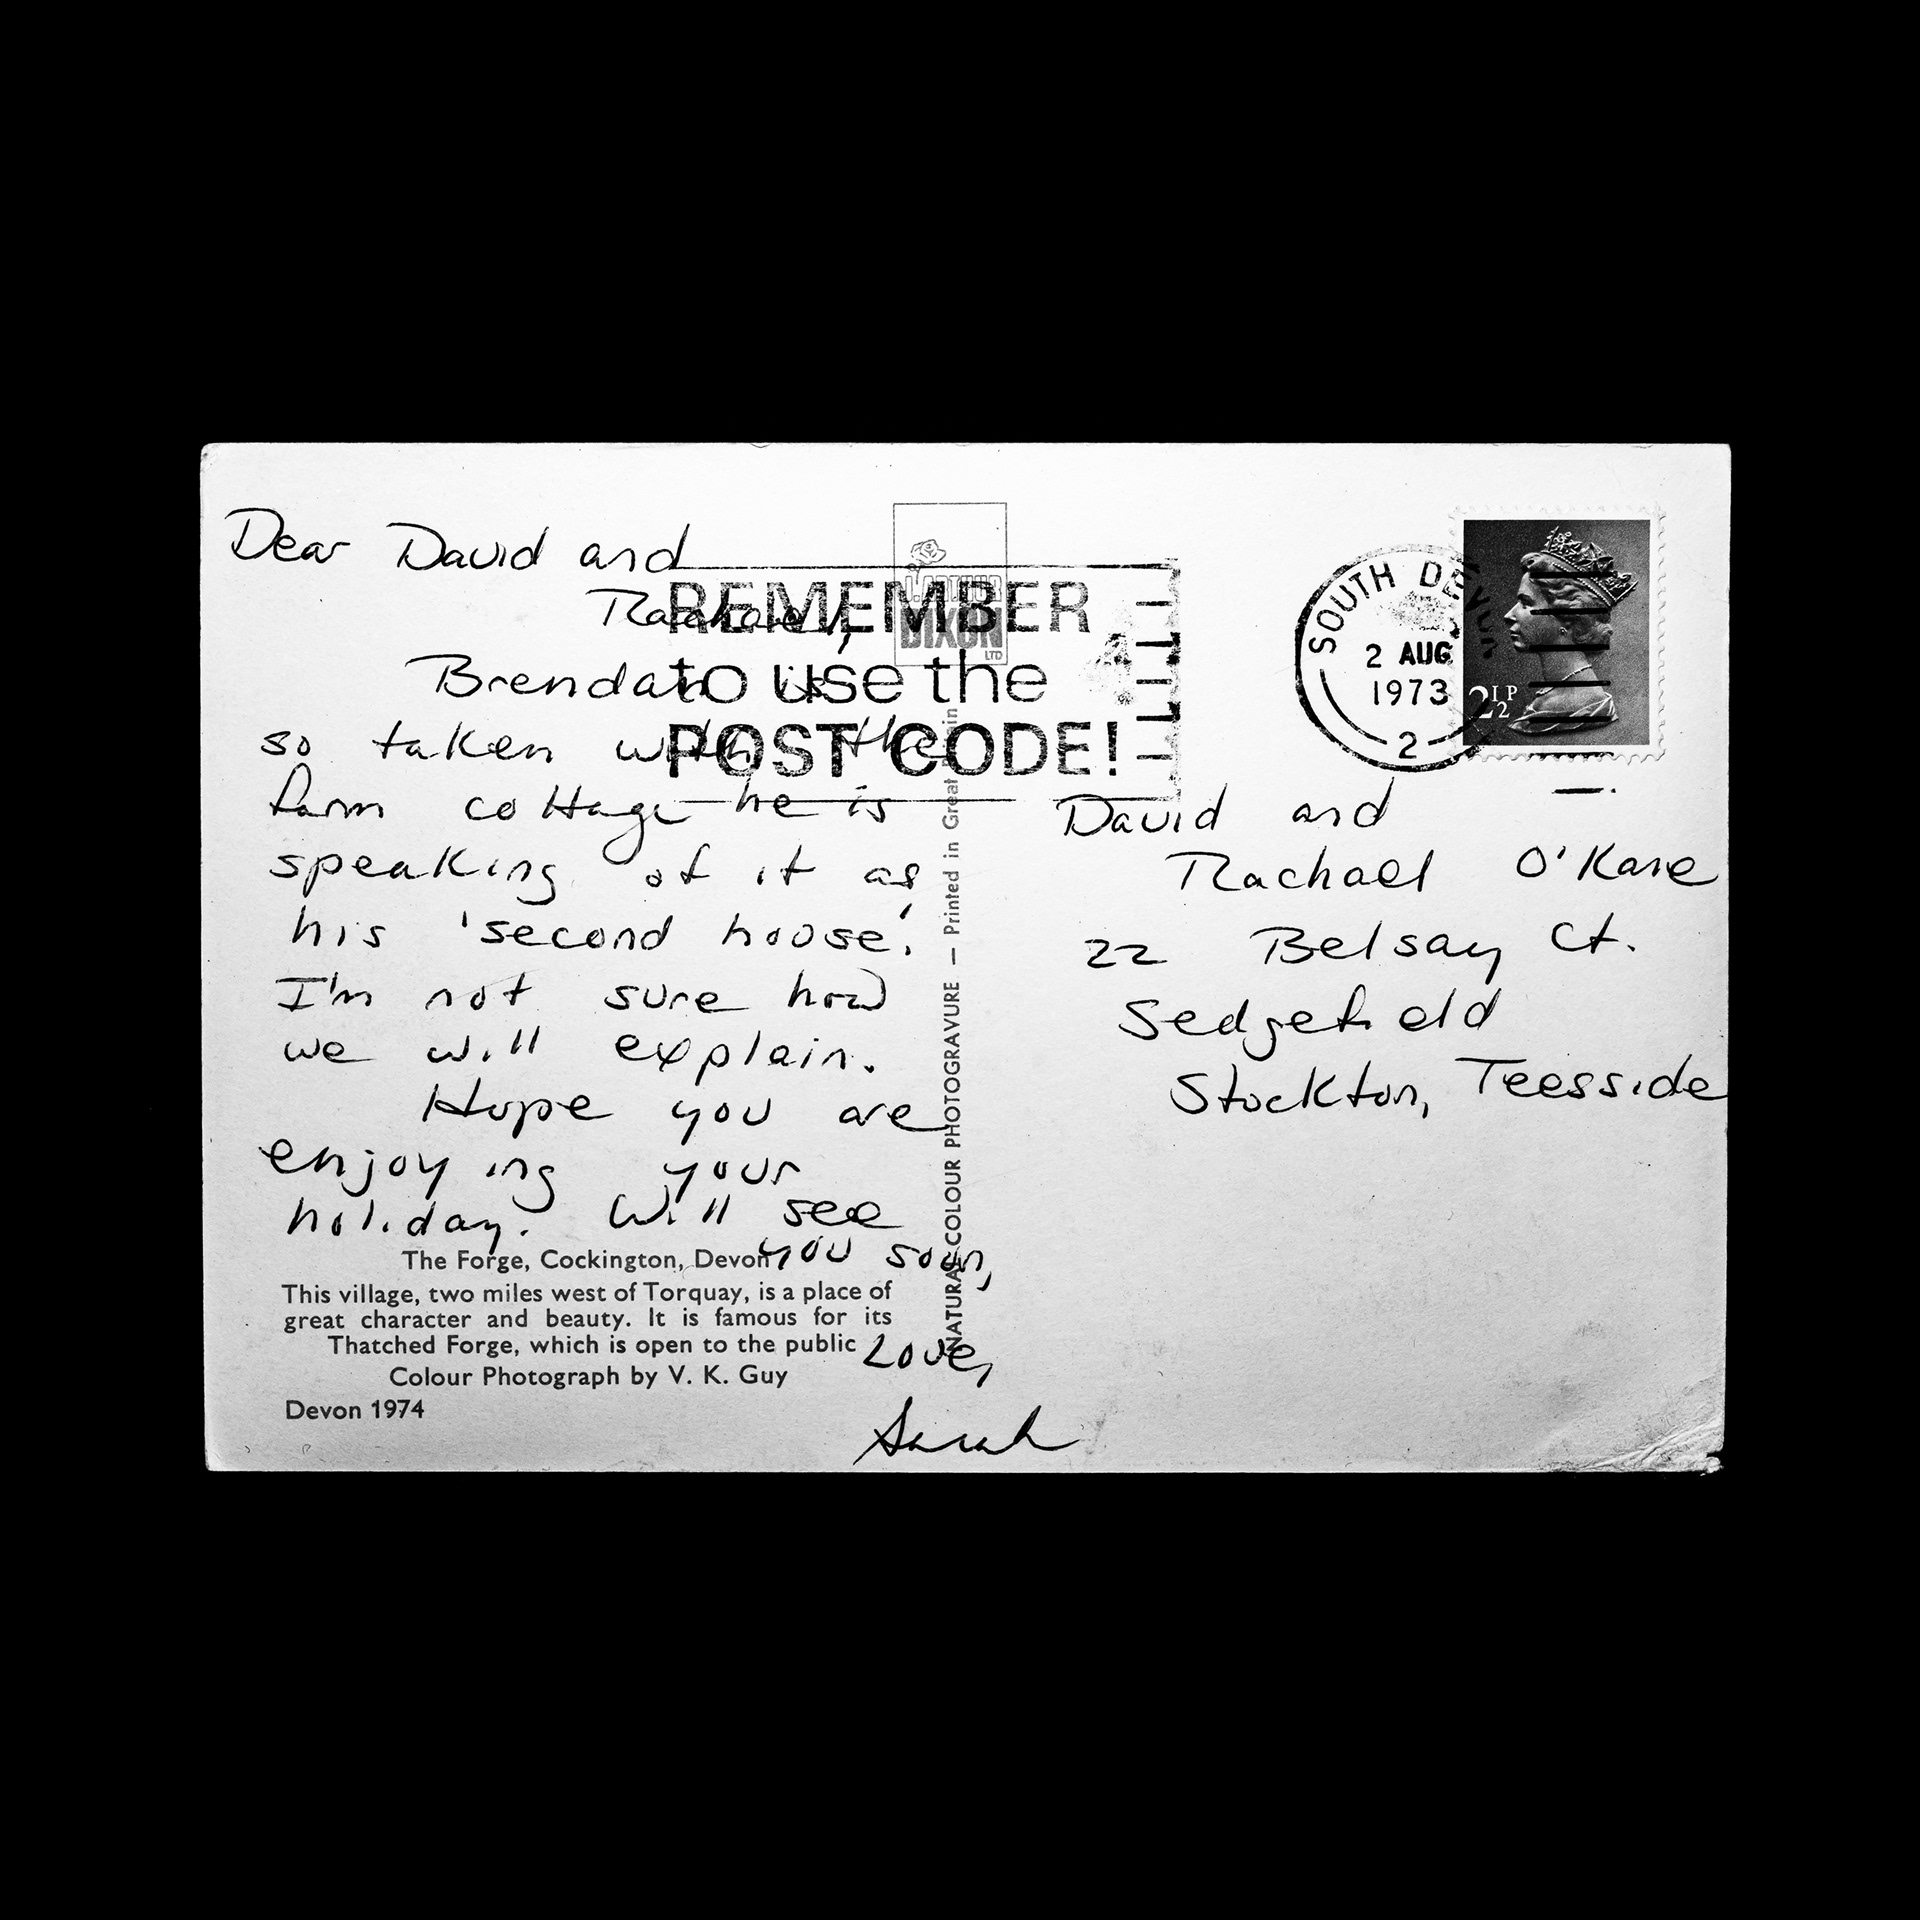 Dear David and
Rachael,
Brendan is
so taken with the
farm cottage he is
speaking of it as
his 'second house'.
I'm not sure how
we will explain.
Hope you are
enjoying your
holiday. Will see
you soon,
Love,
Sarah
The Forge, Cockington, Devon
This village, two miles west of Torquay, is a place of
great character and beauty. It is famous for its
Thatched Forge, which is open to the public
Colour Photograph by V. K. Guy
Devon 1974
J. ARTHUR
DIXON
LTD
NATURAL COLOUR PHOTOGRAVURE — Printed in Great Britain
REMEMBER
to use the
POST CODE!
SOUTH DEVON
2 AUG
1973
2
2½P
David and
Rachael O'Kane
22 Belsay Ct.
Sedgefield
Stockton, Teesside